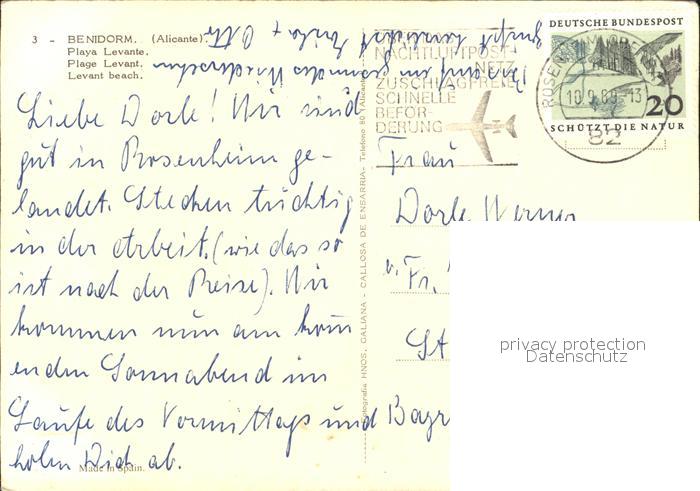 3 - BENIDORM. (Alicante).
Playa Levante.
Plage Levant.
Levant beach.
Liebe Dorle! Wir sind
gut in Rosenheim ge-
landet. Stecken tüchtig
in der Arbeit. (wie das so
ist nach der Reise). Wir
kommen nun am komm
enden Sonnabend im
Laufe des Vormittags und
holen Dich ab.
Made in Spain.
auf gesundes Wiedersehen
HNOS. GALIANA - CALLOSA DE ENSARRIA.- Telefono 80 (Alicante)
NACHTLUFTPOST-
NETZ
ZUSCHLAGFREIE
SCHNELLE
BEFÖR-
DERUNG
DEUTSCHE BUNDESPOST
20
SCHÜTZT DIE NATUR
82
Frau
Dorle Werner
Fr.
St
Bayr
privacy protection
Datenschutz